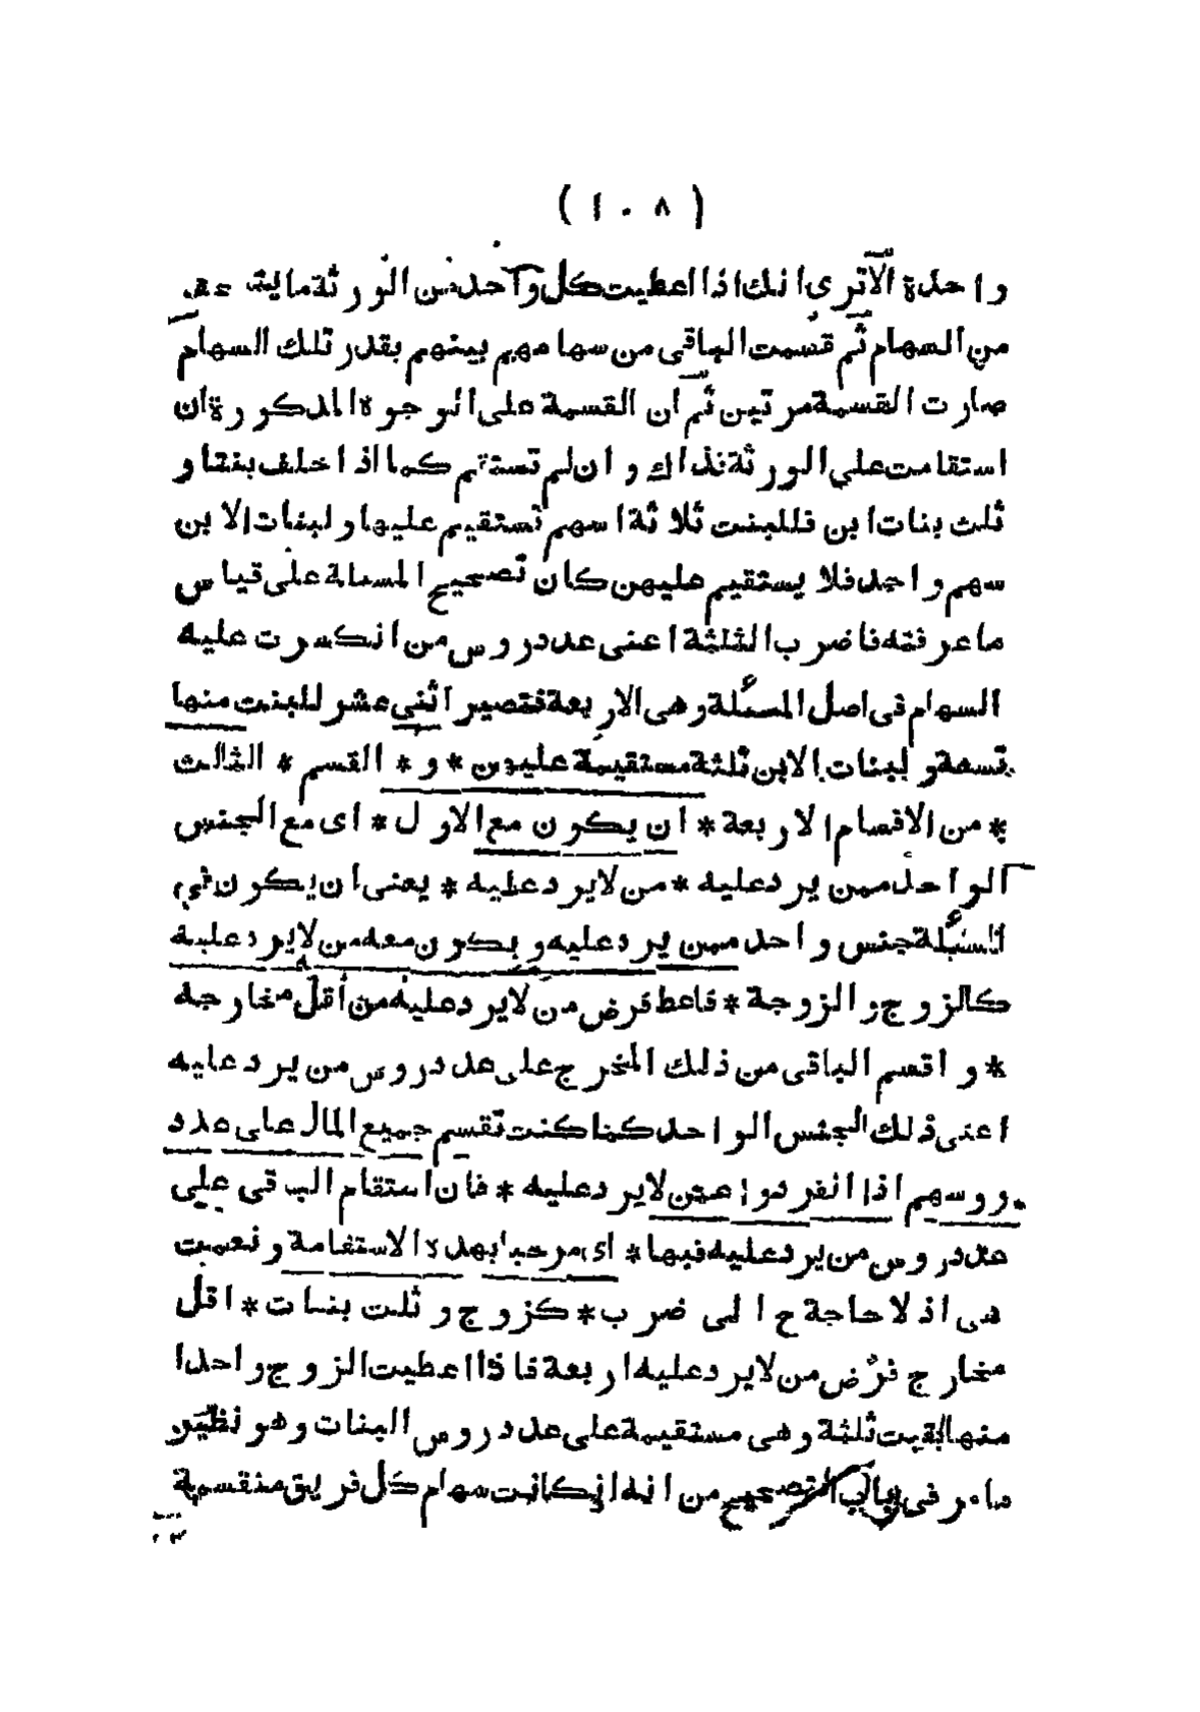 ( ١٠٨ )
واحدة الاترى انك اذا اعطيت كل واحد من الورثة ما يستحقه
من السهام ثم قسمت الباقى من سهامهم بينهم بقدر تلك السهام
صارت القسمة مرتين ثم ان القسمة على الوجوه المذكورة ان
استقامت على الورثة فذاك وان لم تستقم كما اذا خلف بنتا و
ثلث بنات ابن فللبنت ثلاثة اسهم تستقيم عليها ولبنات الابن
سهم واحد فلا يستقيم عليهن كان تصحيح المسئلة على قياس
ما عرفته فاضرب الثلثة اعنى عدد روس من انكسرت عليه
السهام فى اصل المسئلة وهى الاربعة فتصير اثنى عشر للبنت منها
تسعة ولبنات الابن ثلثة مستقيمة عليهن * و * القسم * الثالث
* من الاقسام الاربعة * ان يكون مع الاول * اى مع الجنس
الواحد ممن يرد عليه * من لا يرد عليه * يعنى ان يكون فى
المسئلة جنس واحد ممن يرد عليه ويكون معه من لا يرد عليه
كالزوج والزوجة * فاعط فرض من لا يرد عليه من أقل مخارجه
* واقسم الباقى من ذلك المخرج على عدد روس من يرد عليه
اعنى ذلك الجنس الواحد كما كنت تقسم جميع المال على عدد
روسهم اذا انفردوا عمن لا يرد عليه * فان استقام الباقى على
عدد روس من يرد عليه فبها * اى مرحبا بهذه الاستقامة ونعمت
هى اذ لا حاجة ح الى ضرب * كزوج وثلث بنات * اقل
مخارج فرض من لا يرد عليه اربعة فاذا اعطيت الزوج واحدا
منها بقيت ثلثة وهى مستقيمة على عدد روس البنات وهو نظير
ما مر فى باب التصحيح من انه ان كانت سهام كل فريق منقسمة